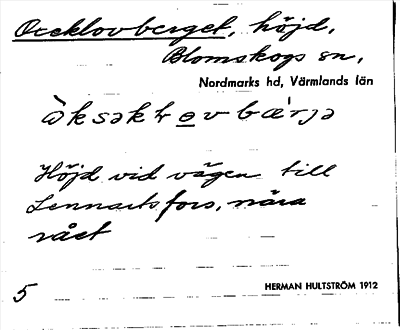 Oxeklovberget, höjd,
Blomskogs sn,
Nordmarks hd, Värmlands län
Höjd vid vägen till
Lennartsfors, nära
rået
5
HERMAN HULTSTRÖM 1912